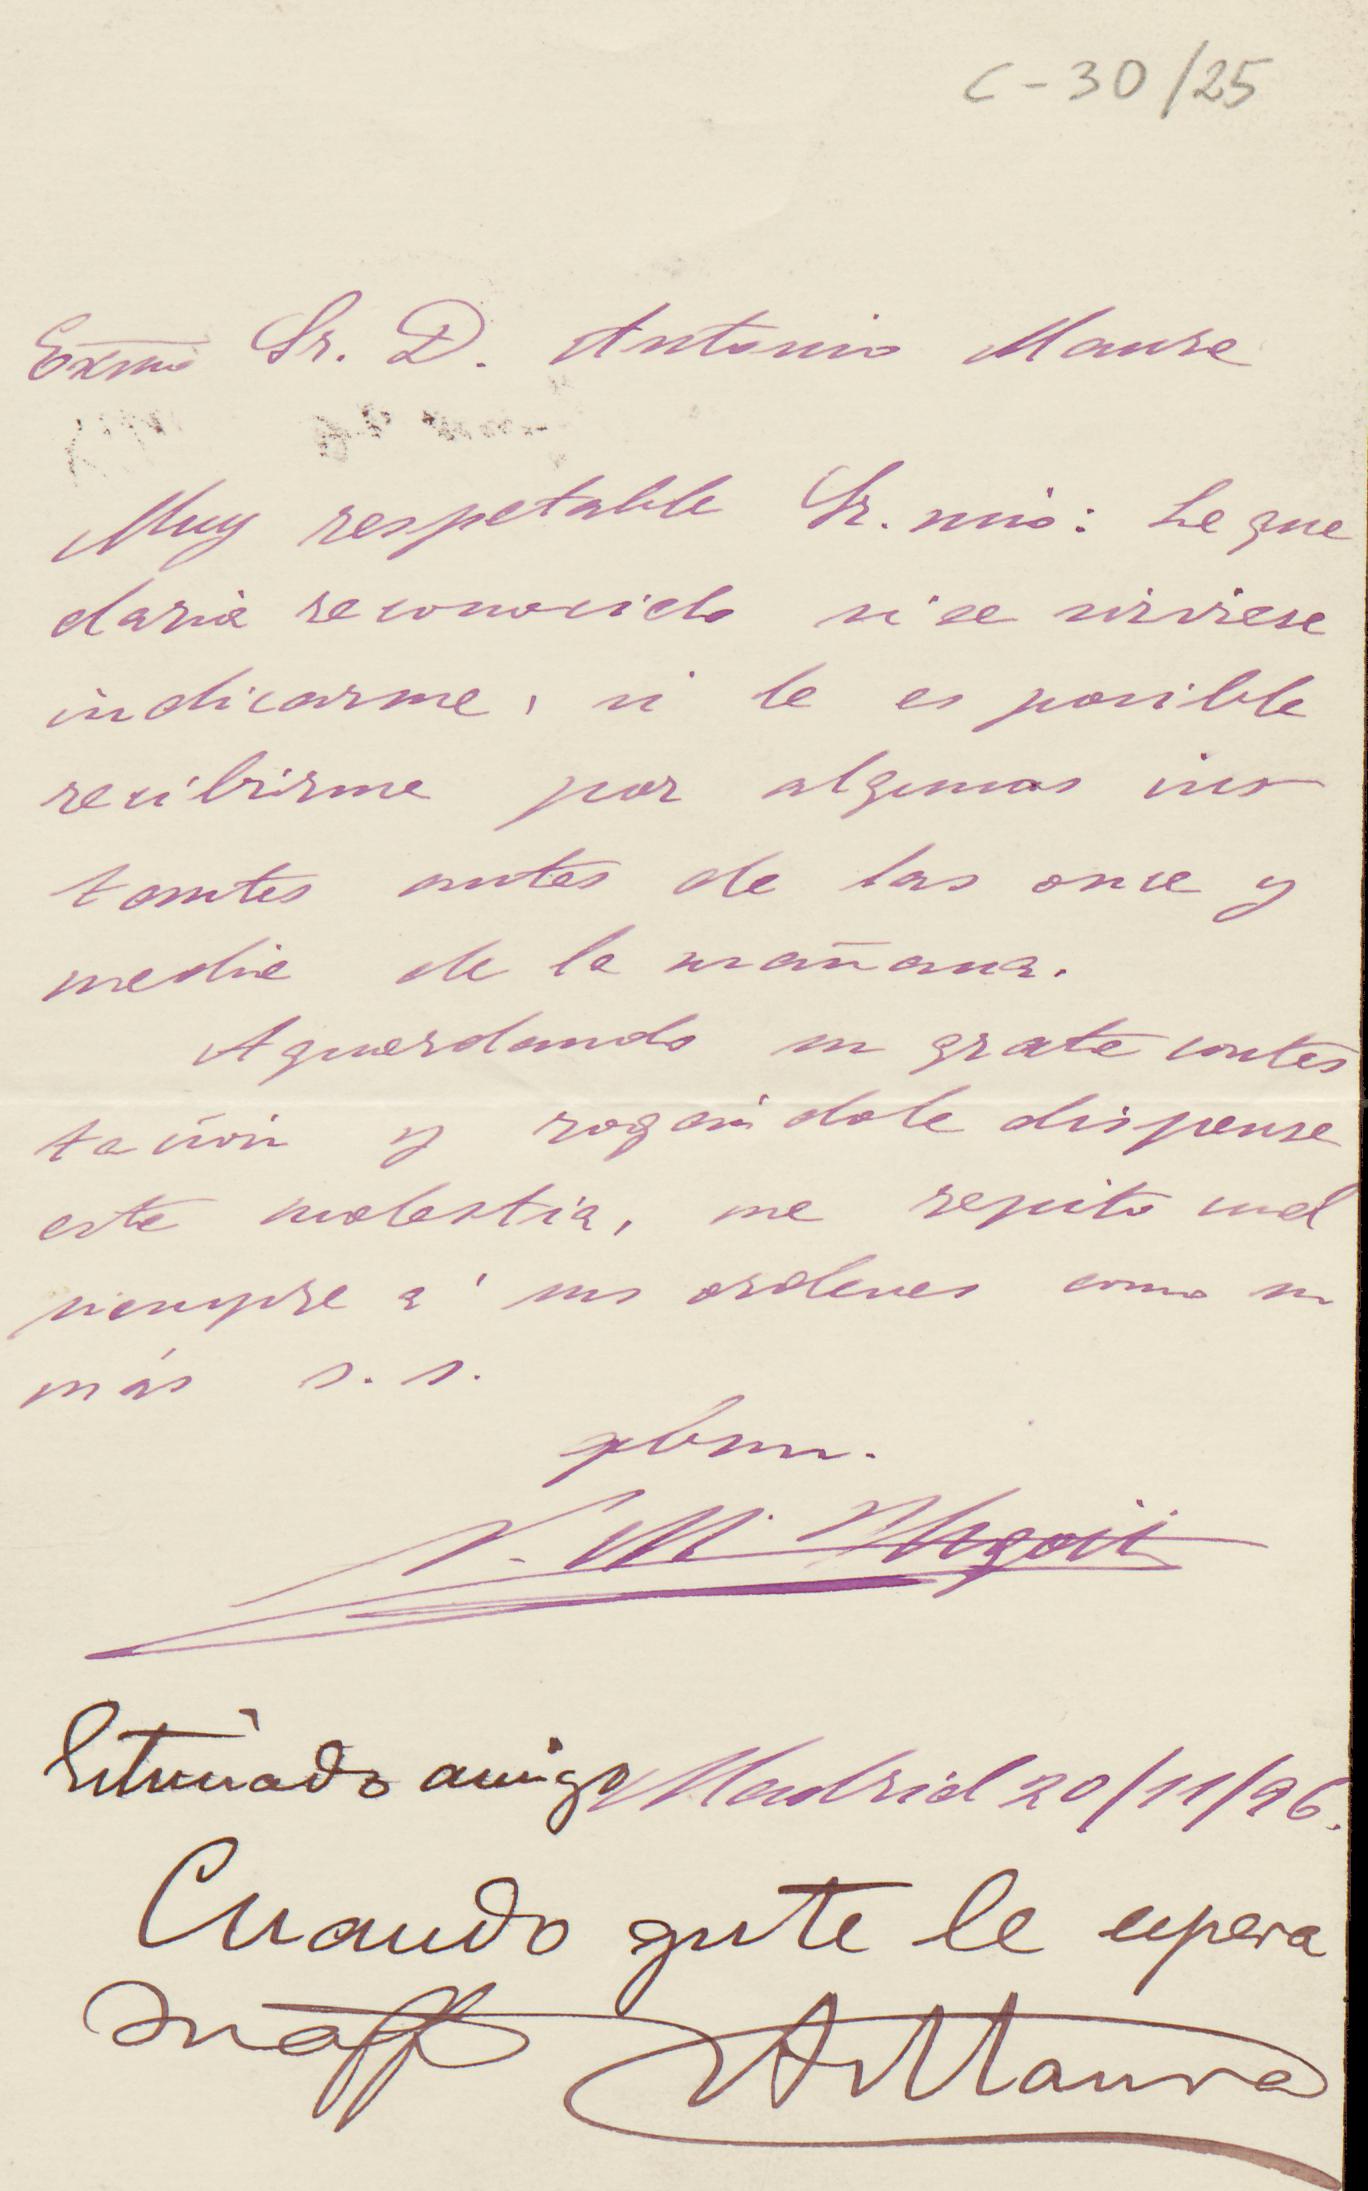 C-30/25
Exmo Sr. D. Antonio Maura
Muy respetable Sr. mio: Le que
daria reconocido si se sirviese
indicarme, si le es posible
recibirme por algunos ins
tantes antes de las once y
media de la mañana.
Aguardando su grata contes
tación y rogándole dispense
esta molestia, me repito cual
siempre a' sus ordenes como su
más s. s.
qbsm.
N. M. Urgoiti
Madrid 20/11/96.
Estimado amigo
Cuando guste le espera
su aff
A Maura